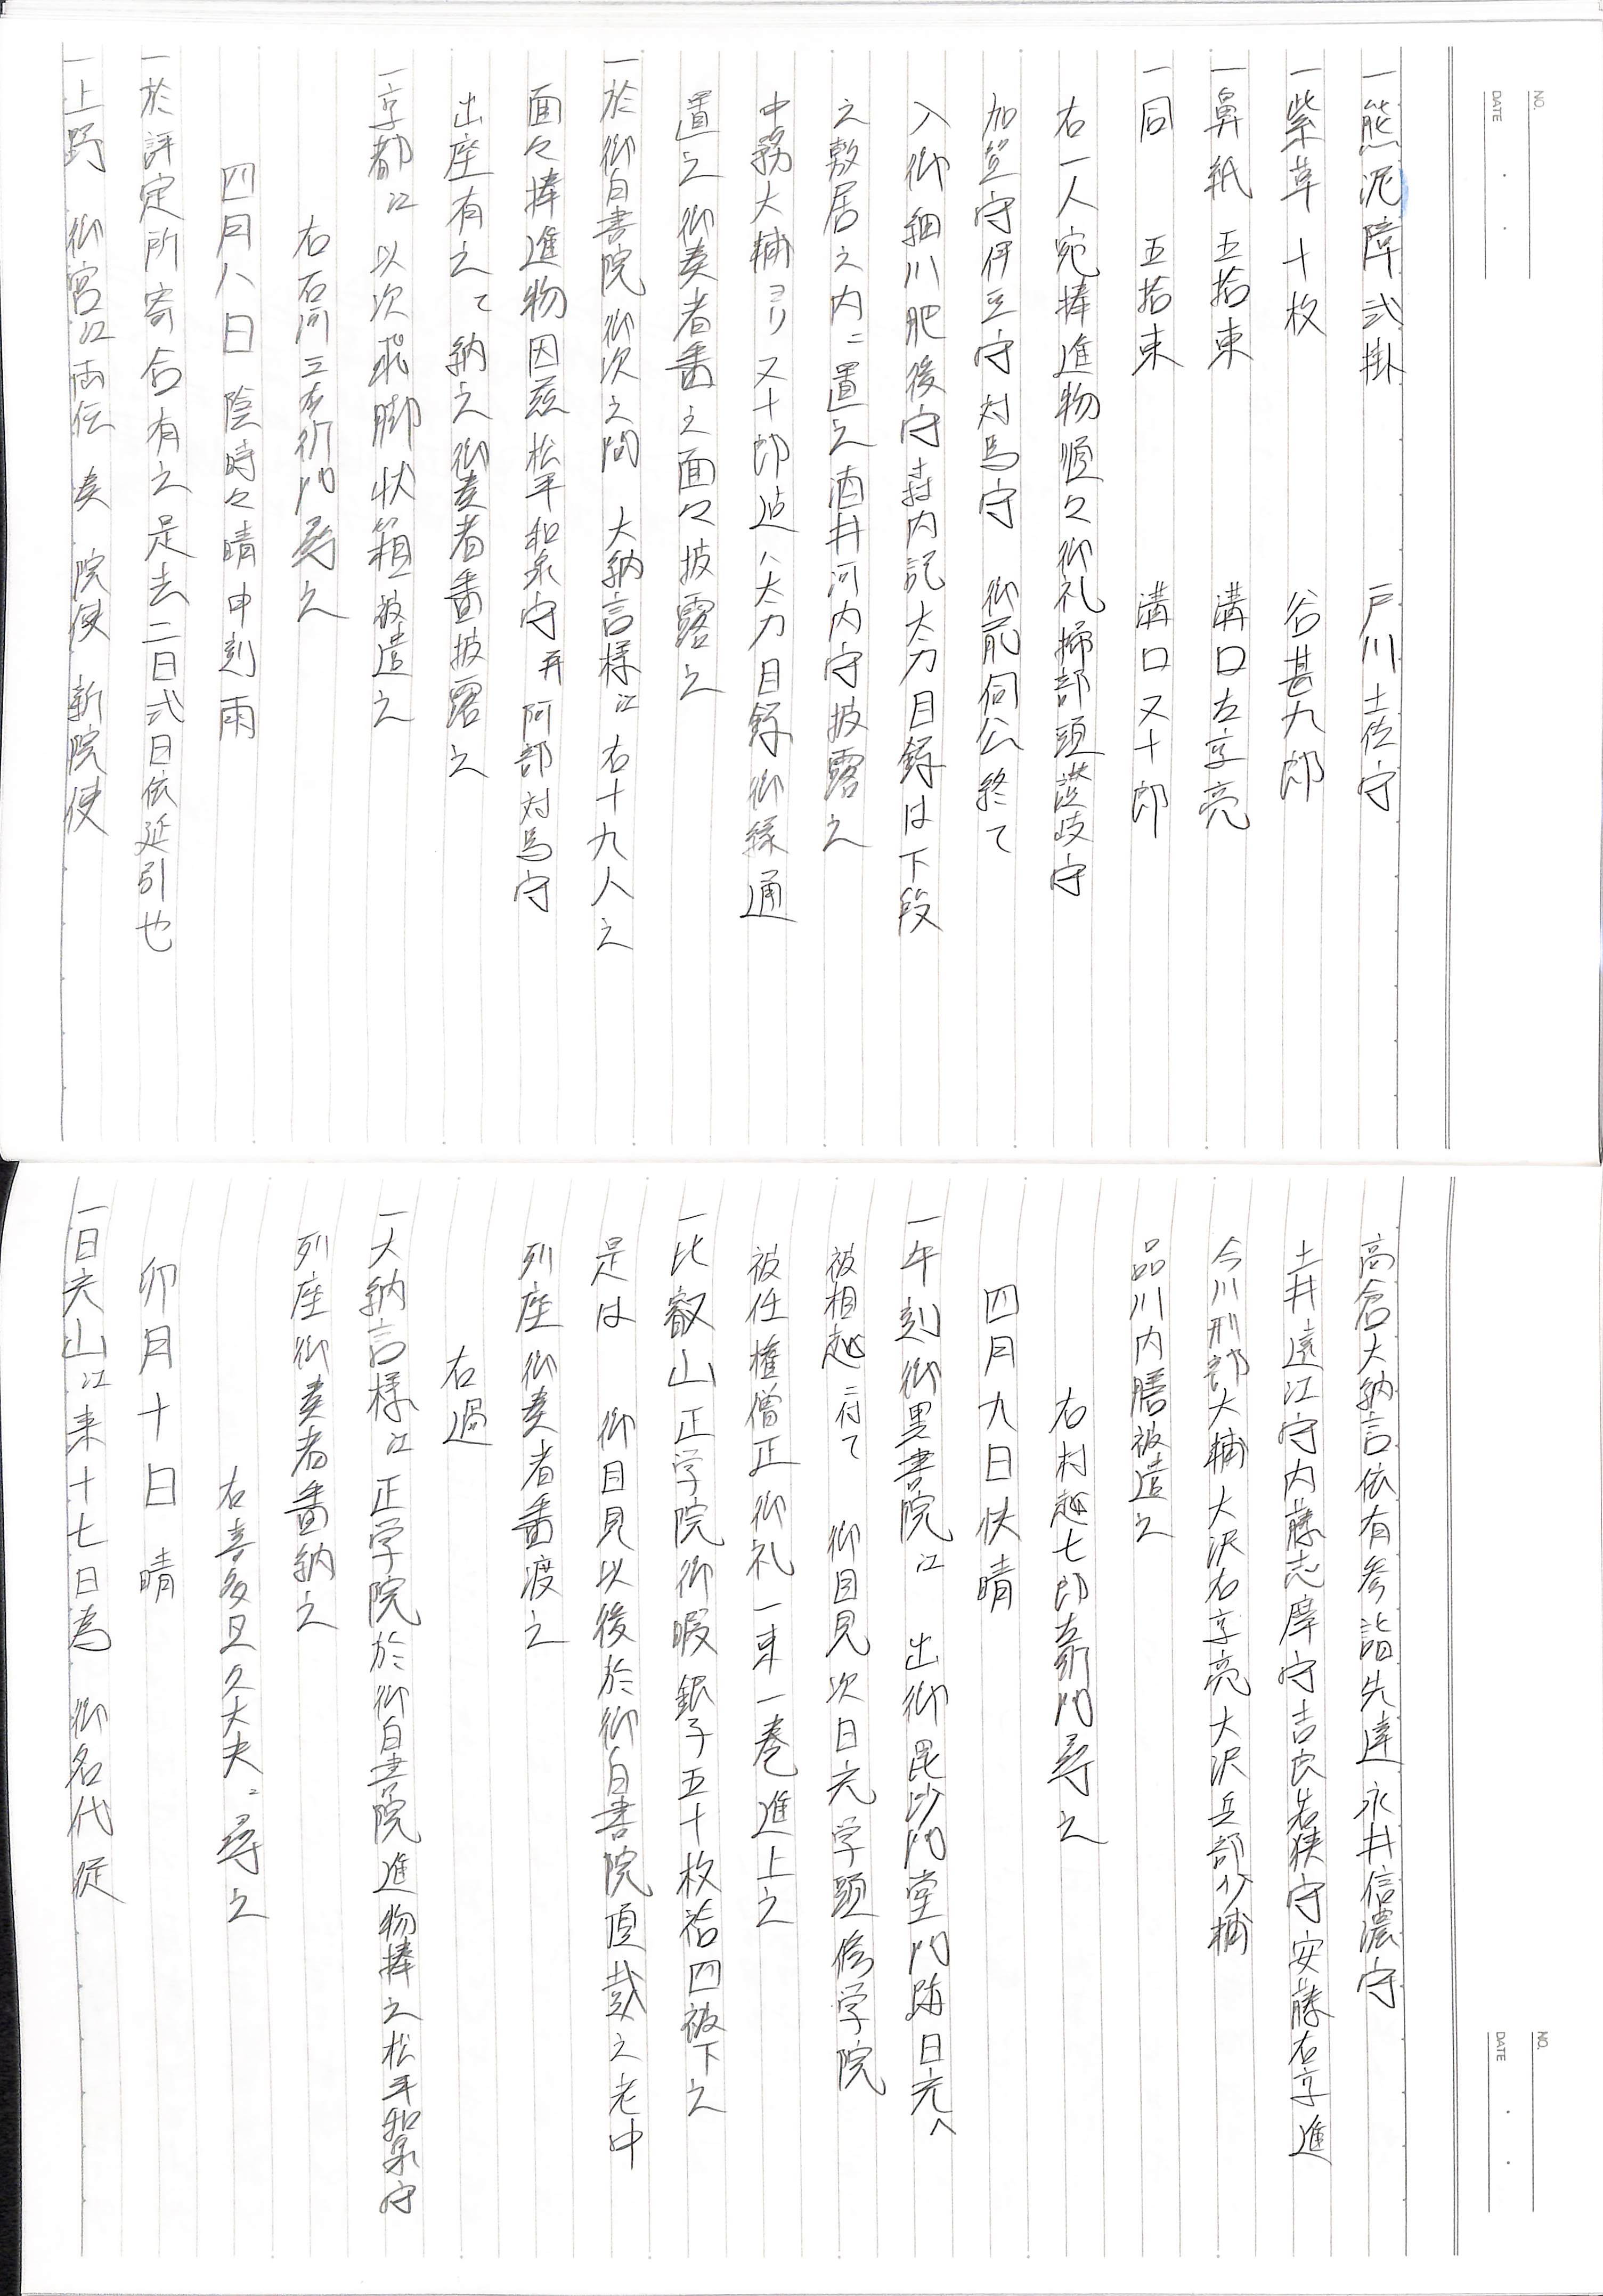 NO.
DATE
一熊泥障 弐掛 戸川土佐守
一紫革 十枚 谷甚九郎
一鼻紙 五拾束 溝口左京亮
一同 五拾束 溝口又十郎
右一人宛捧進物順々御礼掃部頭讃岐守
加賀守伊豆守対馬守 御前伺公終て
入御細川肥後守森内記太刀目録は下段
之敷居之内ニ置之酒井河内守披露之
中務大輔ヨリ又十郎迄ハ太刀目録御縁通
置之御奏者番之面々披露之
一於御白書院御次之間 大納言様江右十九人之
面々捧進物因茲松平和泉守并阿部対馬守
出座有之て納之御奏者番披露之
一京都江以次飛脚状箱被遣之
右石河三右衛門尋之
四月八日 陰時々晴申刻雨
一於評定所寄合有之是去二日式日依延引也
一上野 御宮江両伝奏 院使 新院使
NO.
DATE
高倉大納言依有参詣先達永井信濃守
土井遠江守内藤志摩守吉良若狭守安藤右京進
今川刑部大輔大沢右京亮大沢兵部少輔
品川内膳被遣之
右村越七郎左衛門尋之
四月九日快晴
一午刻御黒書院江 出御毘沙門堂門跡日光へ
被相越ニ付て 御目見次日光学頭修学院
被任権僧正御礼一束一巻進上之
一比叡山正学院御暇銀子五十枚袷四被下之
是は 御目見以後於御白書院頂戴之老中
列座御奏者番渡之
右過
一大納言様江正学院於御白書院進物捧之松平和泉守
列座御奏者番納之
右喜多見久大夫ニ尋之
卯月十日 晴
一日光山江来十七日為 御名代従